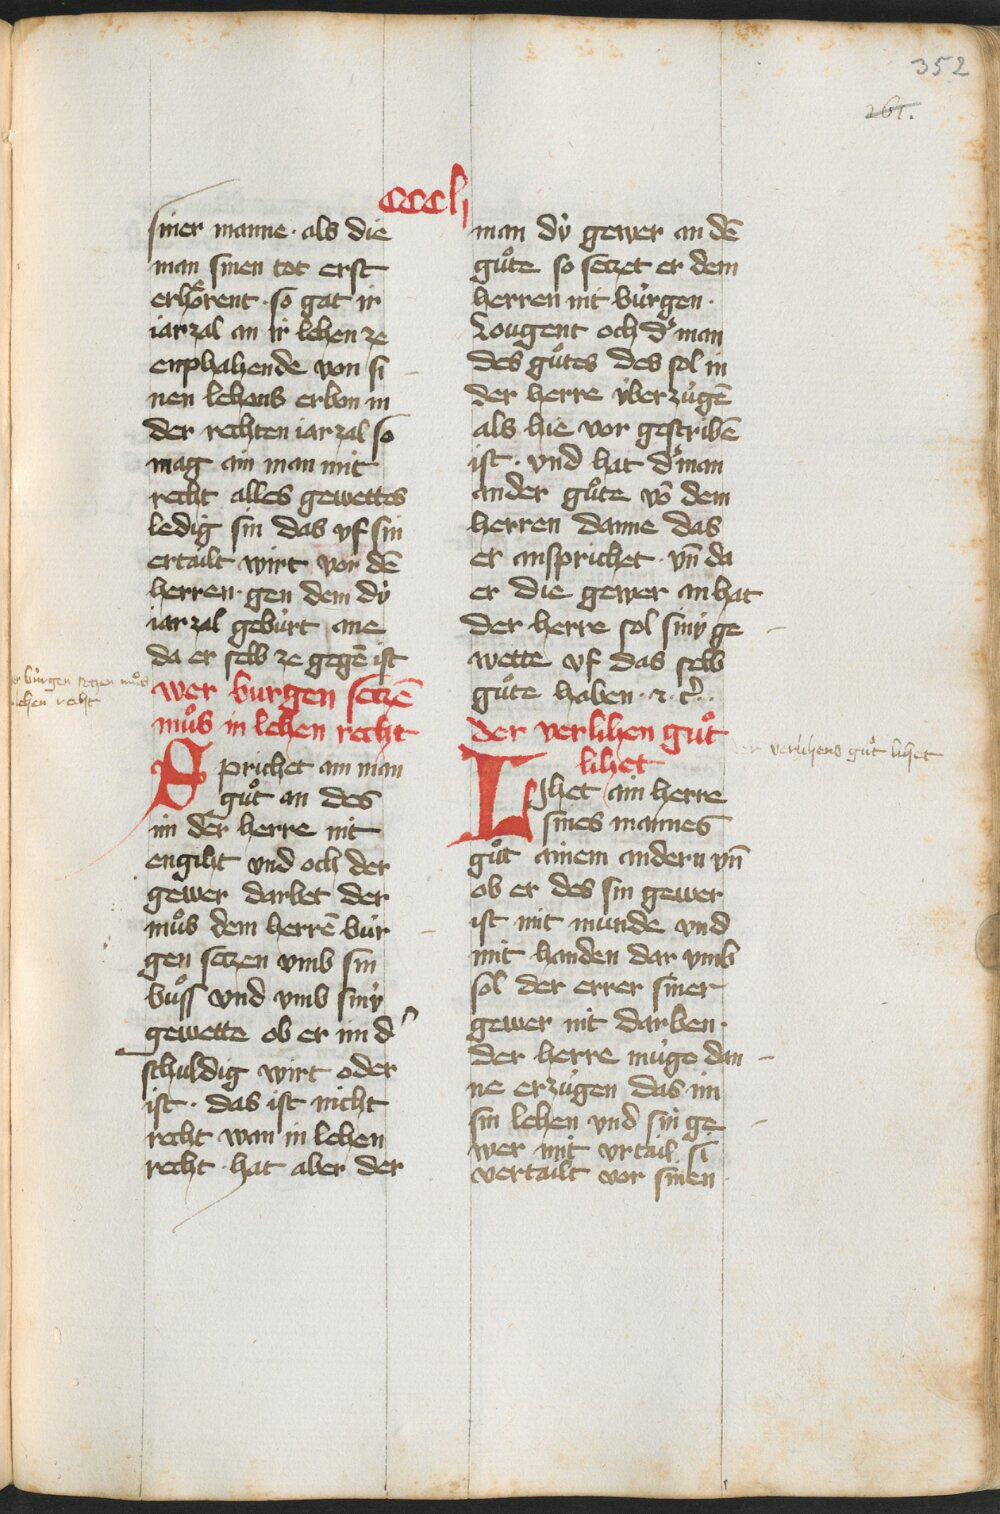 352
261.
ccclj
siner manne · als die
man sinen tot erst
erhoͤrent · so gat ir
iarzal an ir lehen ze
enphahende von si
nen lehens erbon in
der rechten iarzal so
mag ain man mit
recht alles gewettes
ledig sin das vf sin
ertailt wirt vor dē
herren · gen dem dv̍
iarzal gebu̍rt ane
da er selb ze gegē ist
wer burgen setzē
muͦs in lehen recht
Sprichet ain man
guͦt an des
im der herre nit
engiht vnd och der
gewer darbet der
muͦs dem herrē bu̍r
gen setzen vmb sin
buͦss vnd vmb sinv̍
gewette ob er im d͛
schuldig wirt oder
ist · das ist nicht
recht wan in lehen
recht · hat aber der
man dv̍ gewer an dē
guͦte so setzet er dem
herren nit bu̍rgen ·
Lougent och d͛ man
des guͦtes des sol in
der herre v̍berzu̍gē
als hie vor gescribē
ist · vnd hat d͛ man
ander guͦte vō dem
herren danne das
er ansprichet · vn̄ da
er die gewer an hat
der herre sol sinv̍ ge
wette vf das selb
guͦte haben · ⁊ · cͬ ·
der verlihen guͦt
lihet
Lihet ain herre
sines mannes
guͦt ainem andern vn̄
ob er des sin gewer
ist mit munde vnd
mit handen dar vmb
sol der errer siner
gewer nit darben ·
der herre mu̍ge dan
ne erzu̍gen das im
sin lehen vnd sin ge
wer mit vrtail si
vertailt vor sinen
bu̍rgen setzen muͦs
lehen recht
verlihens guͦt lihet